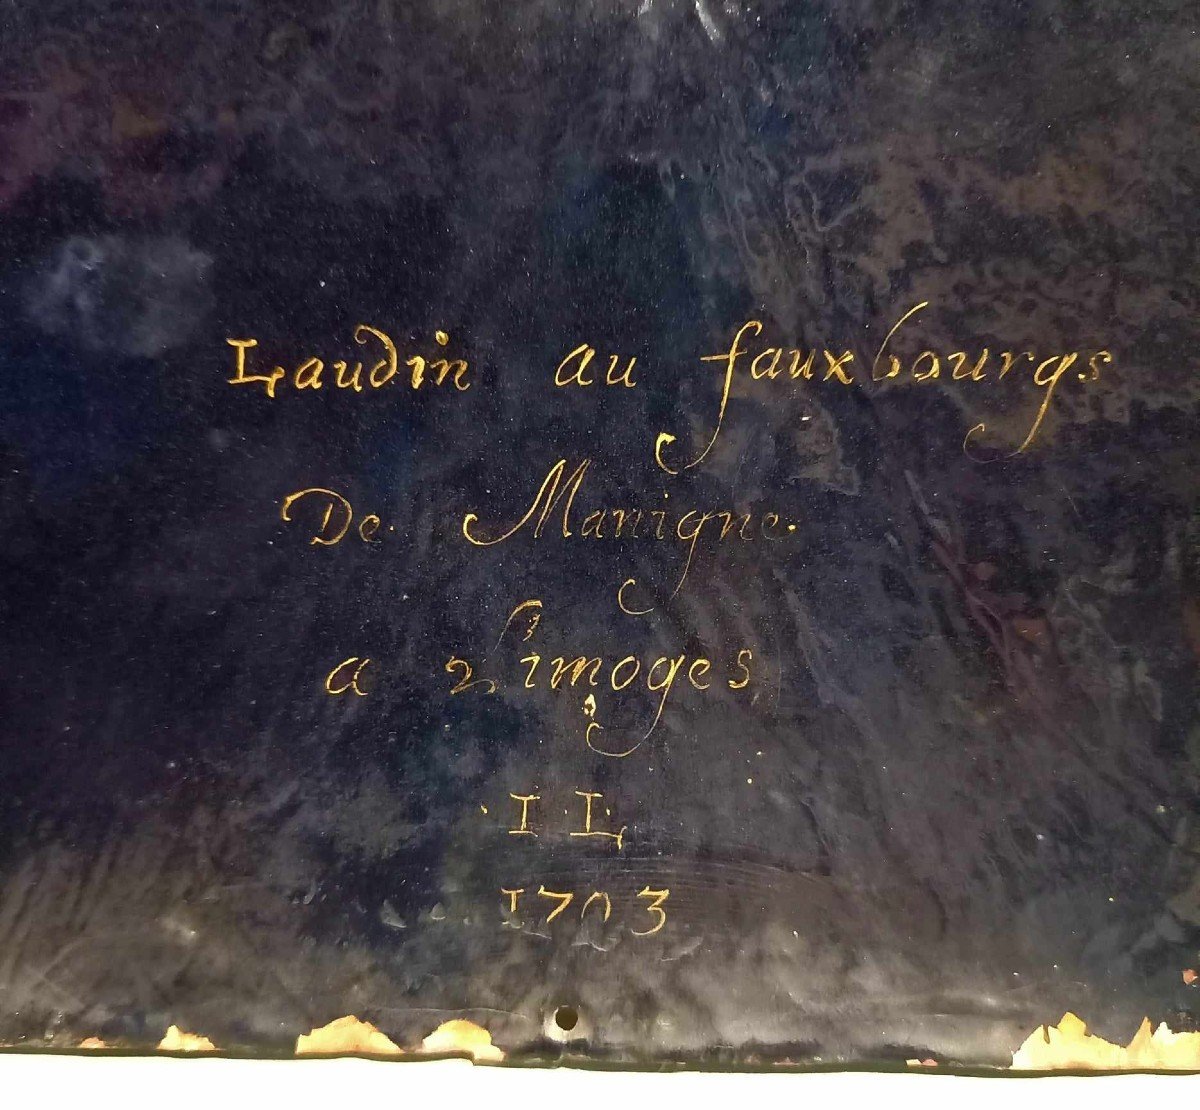 Laudin au fauxbourgs
De Manigne.
a Limoges
I L
1703